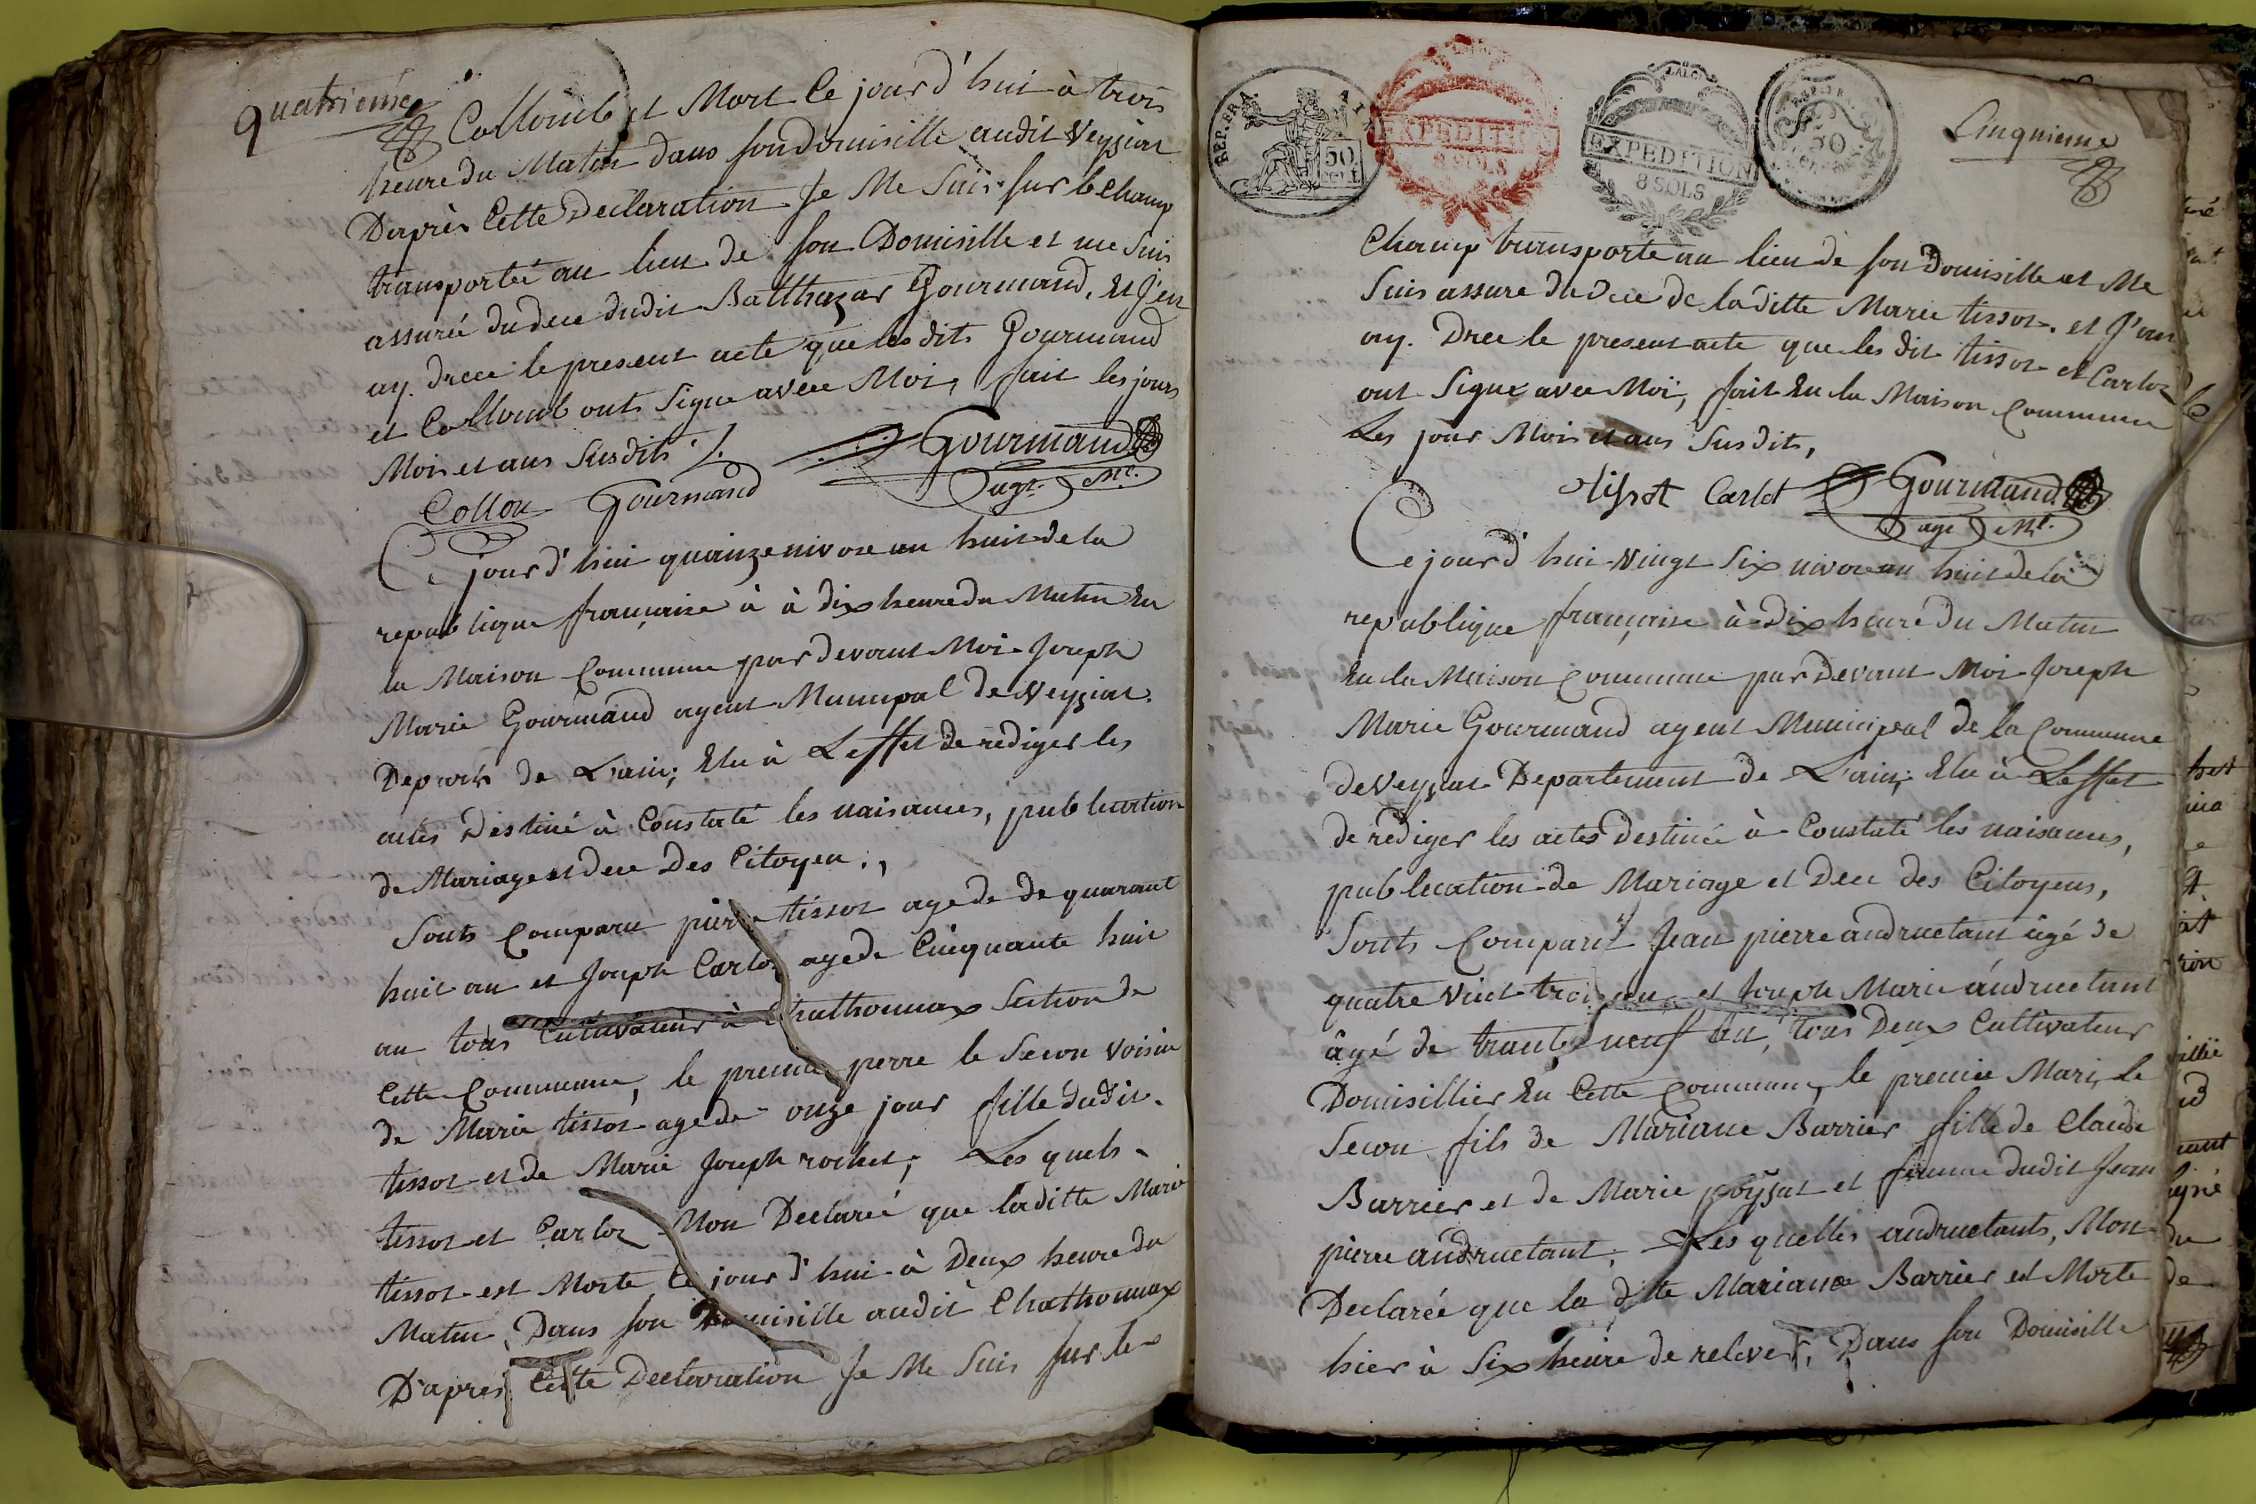 quatrieme
Collomb est Mort Ce jourd'hui à trois
heure du Matin dans son Domisille audit Veyziat
Daprès Cette Declaration Je Me Suis sur le Champ
transportée au lieu de son Domisille et me Suis
assurée du dece dudit Balthazar Gourmand, Et J'en
ay. drece le present acte que lesdits Gourmand
et Collomb ont Signe avec Moi, fait les jours
Mois et ans Susdits ./.
Collon Gourmand Gourmand
agt. Ml.
Ce jourd'hui quinze nivose an huit de la
republique françaisse à à dix heure du Matin En
la Maison Commune par devant Moi Joseph
Marie Gourmand agent Municipal de Veyziat
Departt de L'ain; Elu à Leffet de rediger les
actes Destiné à Constaté les naisances, publication
de Mariage et dece Des Citoyen.,
Sonts Comparu pierre tissot age de de quarant
huit an et Joseph Carloz age de Cinquante huit
an tous Cultivateur à Chathonnax Section de
Cette Commune, le premier perre le Secon Voisin
de Marie tissot age de onze jour fille dudit
tissot et de Marie Joseph rochet; Les quels
tissot et Carloz Mon Declarée que laditte Marie
tissot est Morte Ce jourd'hui à Deux heure du
Matin, Dans son Domisille audit Chathonnax
D'après Cette Declaration Je Me Suis sur le
REP. FRA.
50
CENT.
EXPEDITION
8 SOLS
EXPEDITION
8 SOLS
50
Cinquieme
Champ transporte au lieu de son Domisille et Me
Suis assure du dece de laditte Marie tissot. et J'en
ay. Drece le present acte que les dit tissot et Carloz
ont Signe avec Moi, fait En la Maison Commune
Les jour Mois et ans Susdits,
tissot Carlot Gourmand
agt Ml.
Ce jourd'hui Vingt Six nivose an huit de la
republique françaisse à Dix heure du Matin
En la Maison Commune par Devant Moi Joseph
Marie Gourmand agent Municipal de la Commune
de Veyziat Departement de L'ain; Elu à Leffet
de rediger les actes destinée à Constaté les naisances,
publication de Mariage et Dece des Citoyens,
Sonts Comparu Jean pierre andructant âgé de
quatre Vint trois an et Joseph Marie andructant
âgé de trante neuf an, tous Deux Cultivateur
Domisillier En Cette Commune, le premie Mari, le
Secon fils de Mariane Barrier fille de Claude
Barrier et de Marie poyzat et femme dudit Jean
pierre andructant; Les quelles andructants, Mon
Declarée que la ditte Mariane Barrier est Morte
hier à Six heure de relevé, Dans son Domisille